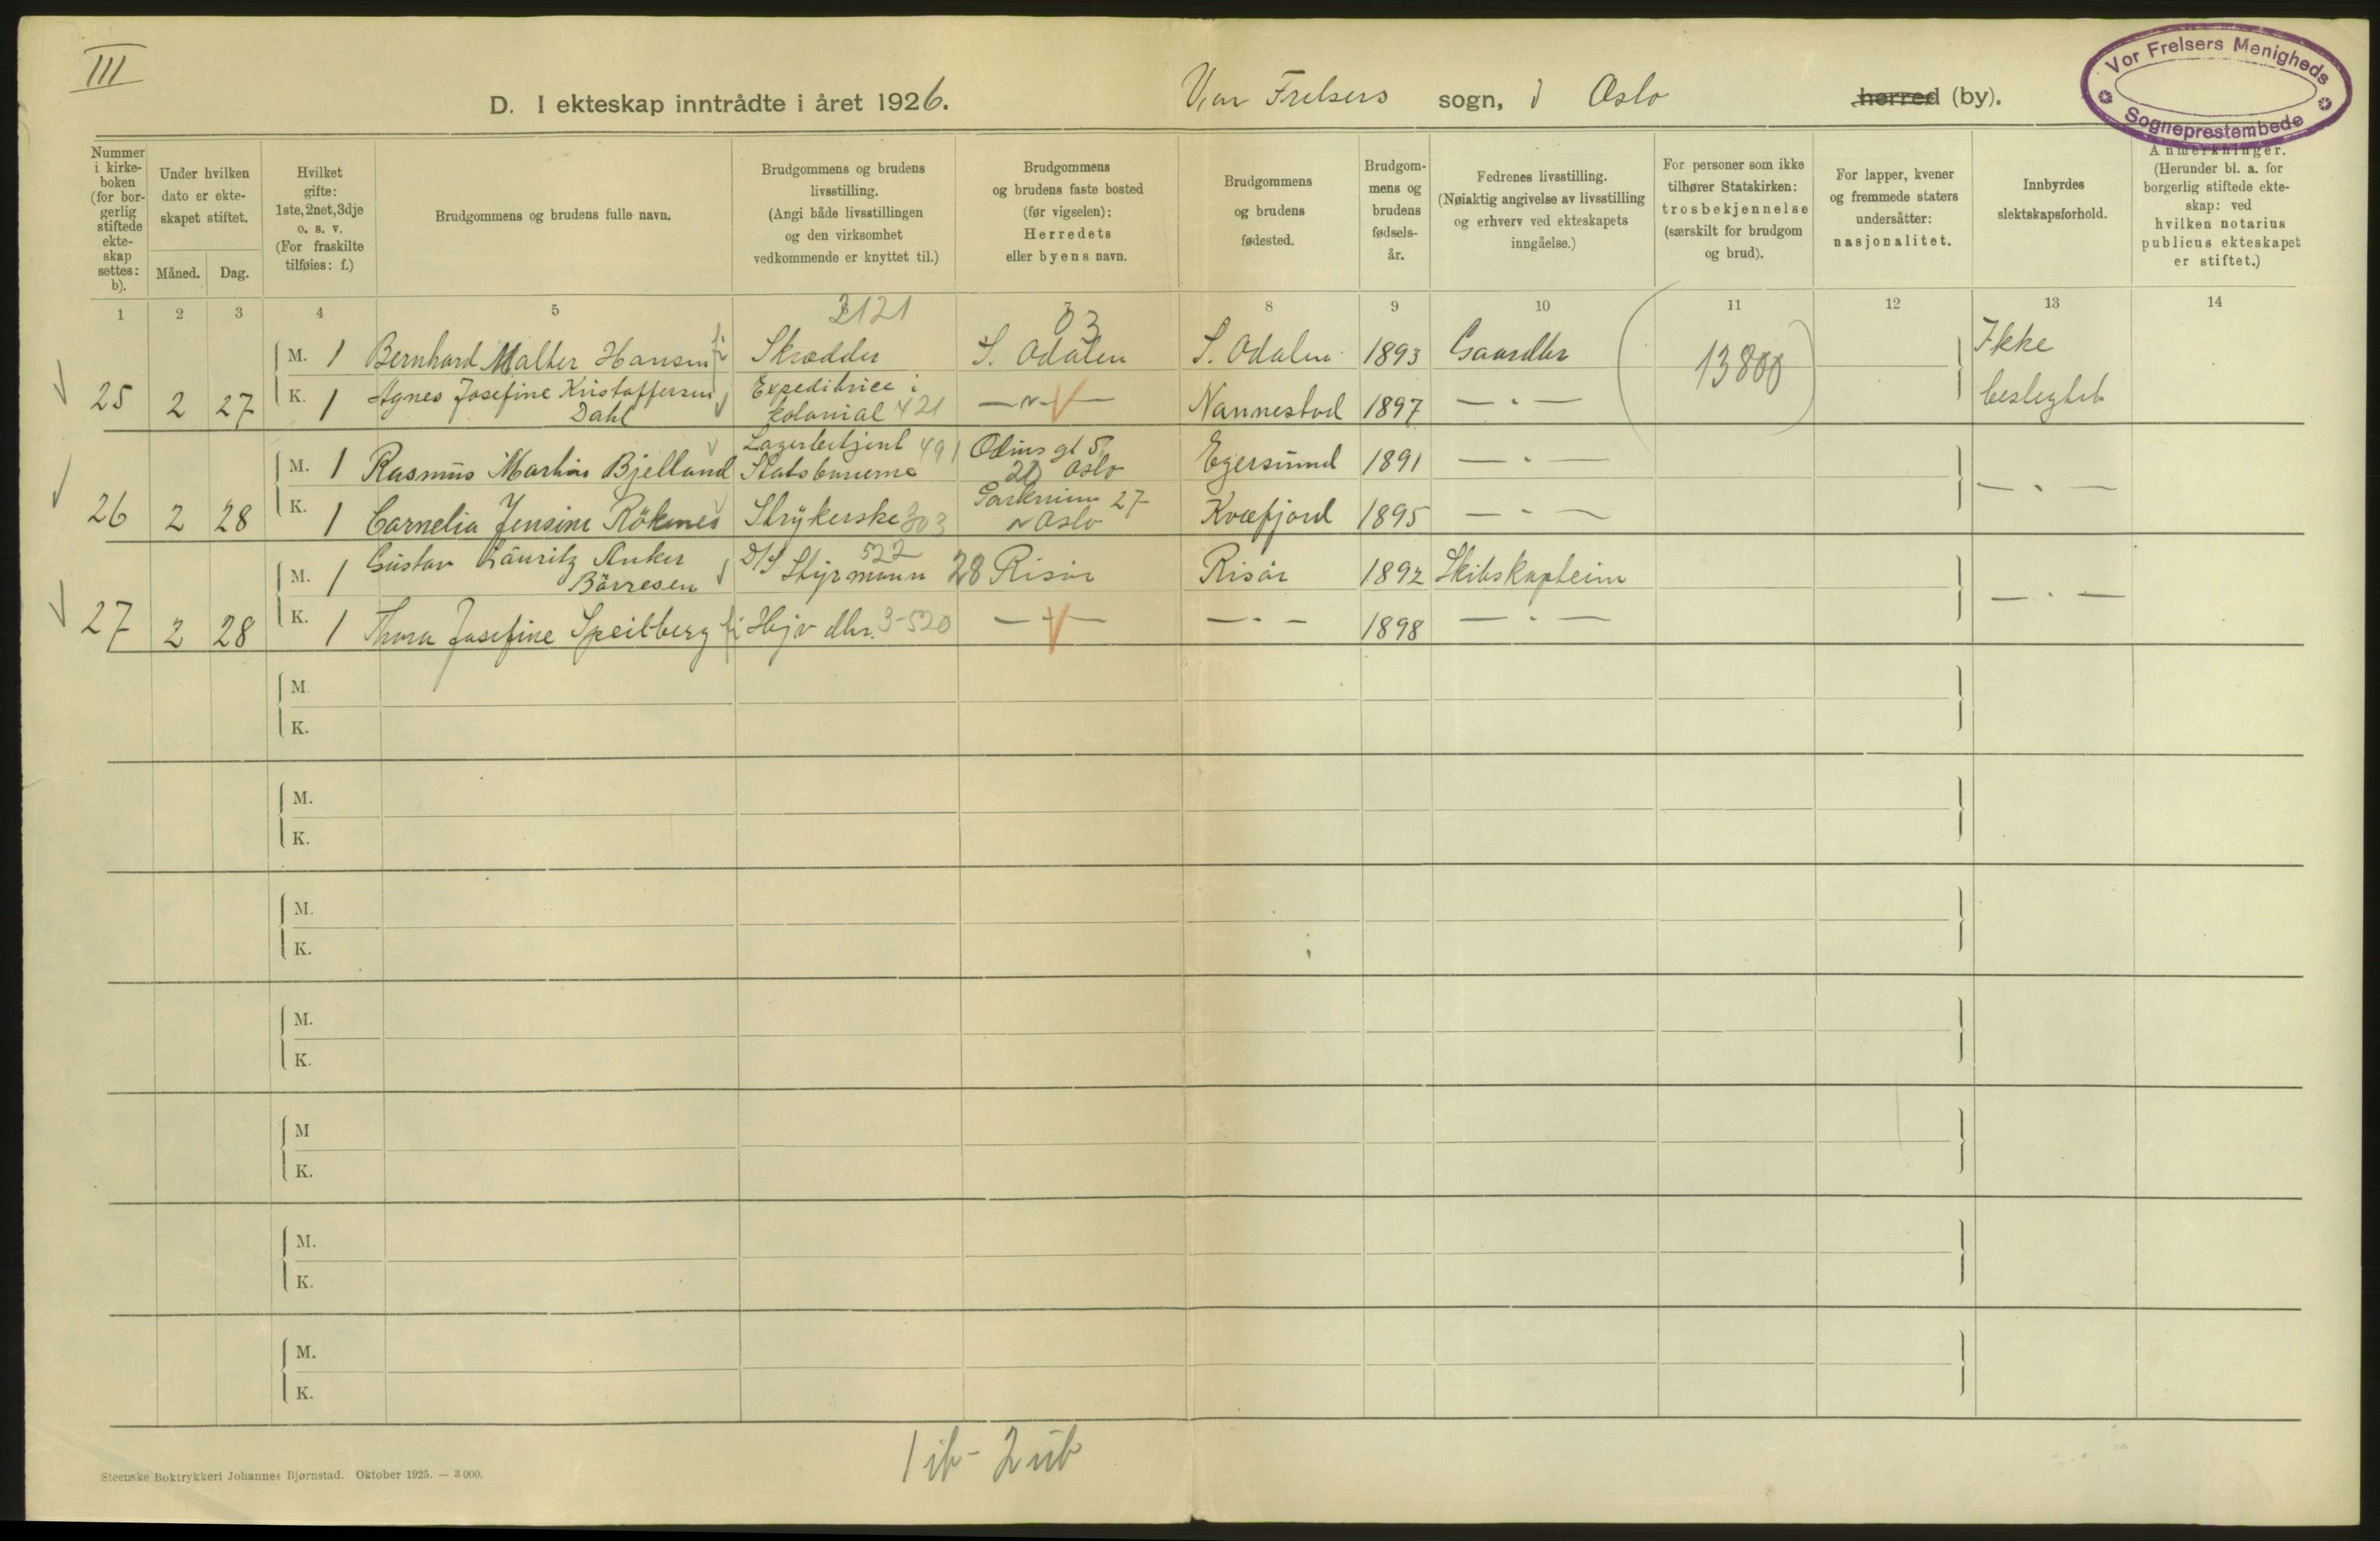 III
D. I ekteskap inntrådte i året 1926.
Vor Frelsers sogn, i Oslo herred (by).
Vor Frelsers Menigheds
Sogneprestembede
Nummer i kirke-boken (for bor-gerlig stiftede ekte-skap settes: b).
Under hvilken dato er ekte-skapet stiftet.
Måned.
Dag.
Hvilket gifte: 1ste, 2net, 3dje o. s. v. (For fraskilte tilføies: f.)
Brudgommens og brudens fulle navn.
Brudgommens og brudens livsstilling. (Angi både livsstillingen og den virksomhet vedkommende er knyttet til.)
Brudgommens og brudens faste bosted (før vigselen): Herredets eller byens navn.
Brudgommens og brudens fødested.
Brudgom-mens og brudens fødsels-år.
Fedrenes livsstilling. (Nøiaktig angivelse av livsstilling og erhverv ved ekteskapets inngåelse.)
For personer som ikke tilhører Statskirken: trosbekjennelse (særskilt for brudgom og brud).
For lapper, kvener og fremmede staters undersåtter: nasjonalitet.
Innbyrdes slektskapsforhold.
Anmerkninger. (Herunder bl. a. for borgerlig stiftede ekte-skap: ved hvilken notarius publicus ekteskapet er stiftet.)
1 2 3 4 5 8 9 10 11 12 13 14
2121 03
M. 1 Bernhard Malter Hansen Skrædder S. Odalen S. Odalen 1893 Gaardbr 13800 Ikke
25 2 27 K. 1 Agnes Josefine Kristoffersen Dahl Expeditrice i kolonial 421 — " — Nannestad 1897 — " — beslegtet
M. 1 Rasmus Martin Bjelland Lagerbetjent 491 Statsbanerne Odins gt 5 20 Oslo Egersund 1891 — " —
26 2 28 K. 1 Cornelia Jensine Röknes Strykerske 303 27 Oslo Kvæfjord 1895 — " — — " —
M. 1 Gustav Lauritz Anker Börresen D/S Styrmann 522 28 Risör Risör 1892 Skibskaptein
27 2 28 K. 1 Thora Josefine Speilberg Hjv dhr. 3-520 — " — — " — 1898 — " — — " —
M.
K.
M.
K.
M.
K.
M.
K.
M
K.
M.
K.
M.
K.
1 ib - 2 ub
Steenske Boktrykkeri Johannes Bjørnstad. Oktober 1925. — 3 000.